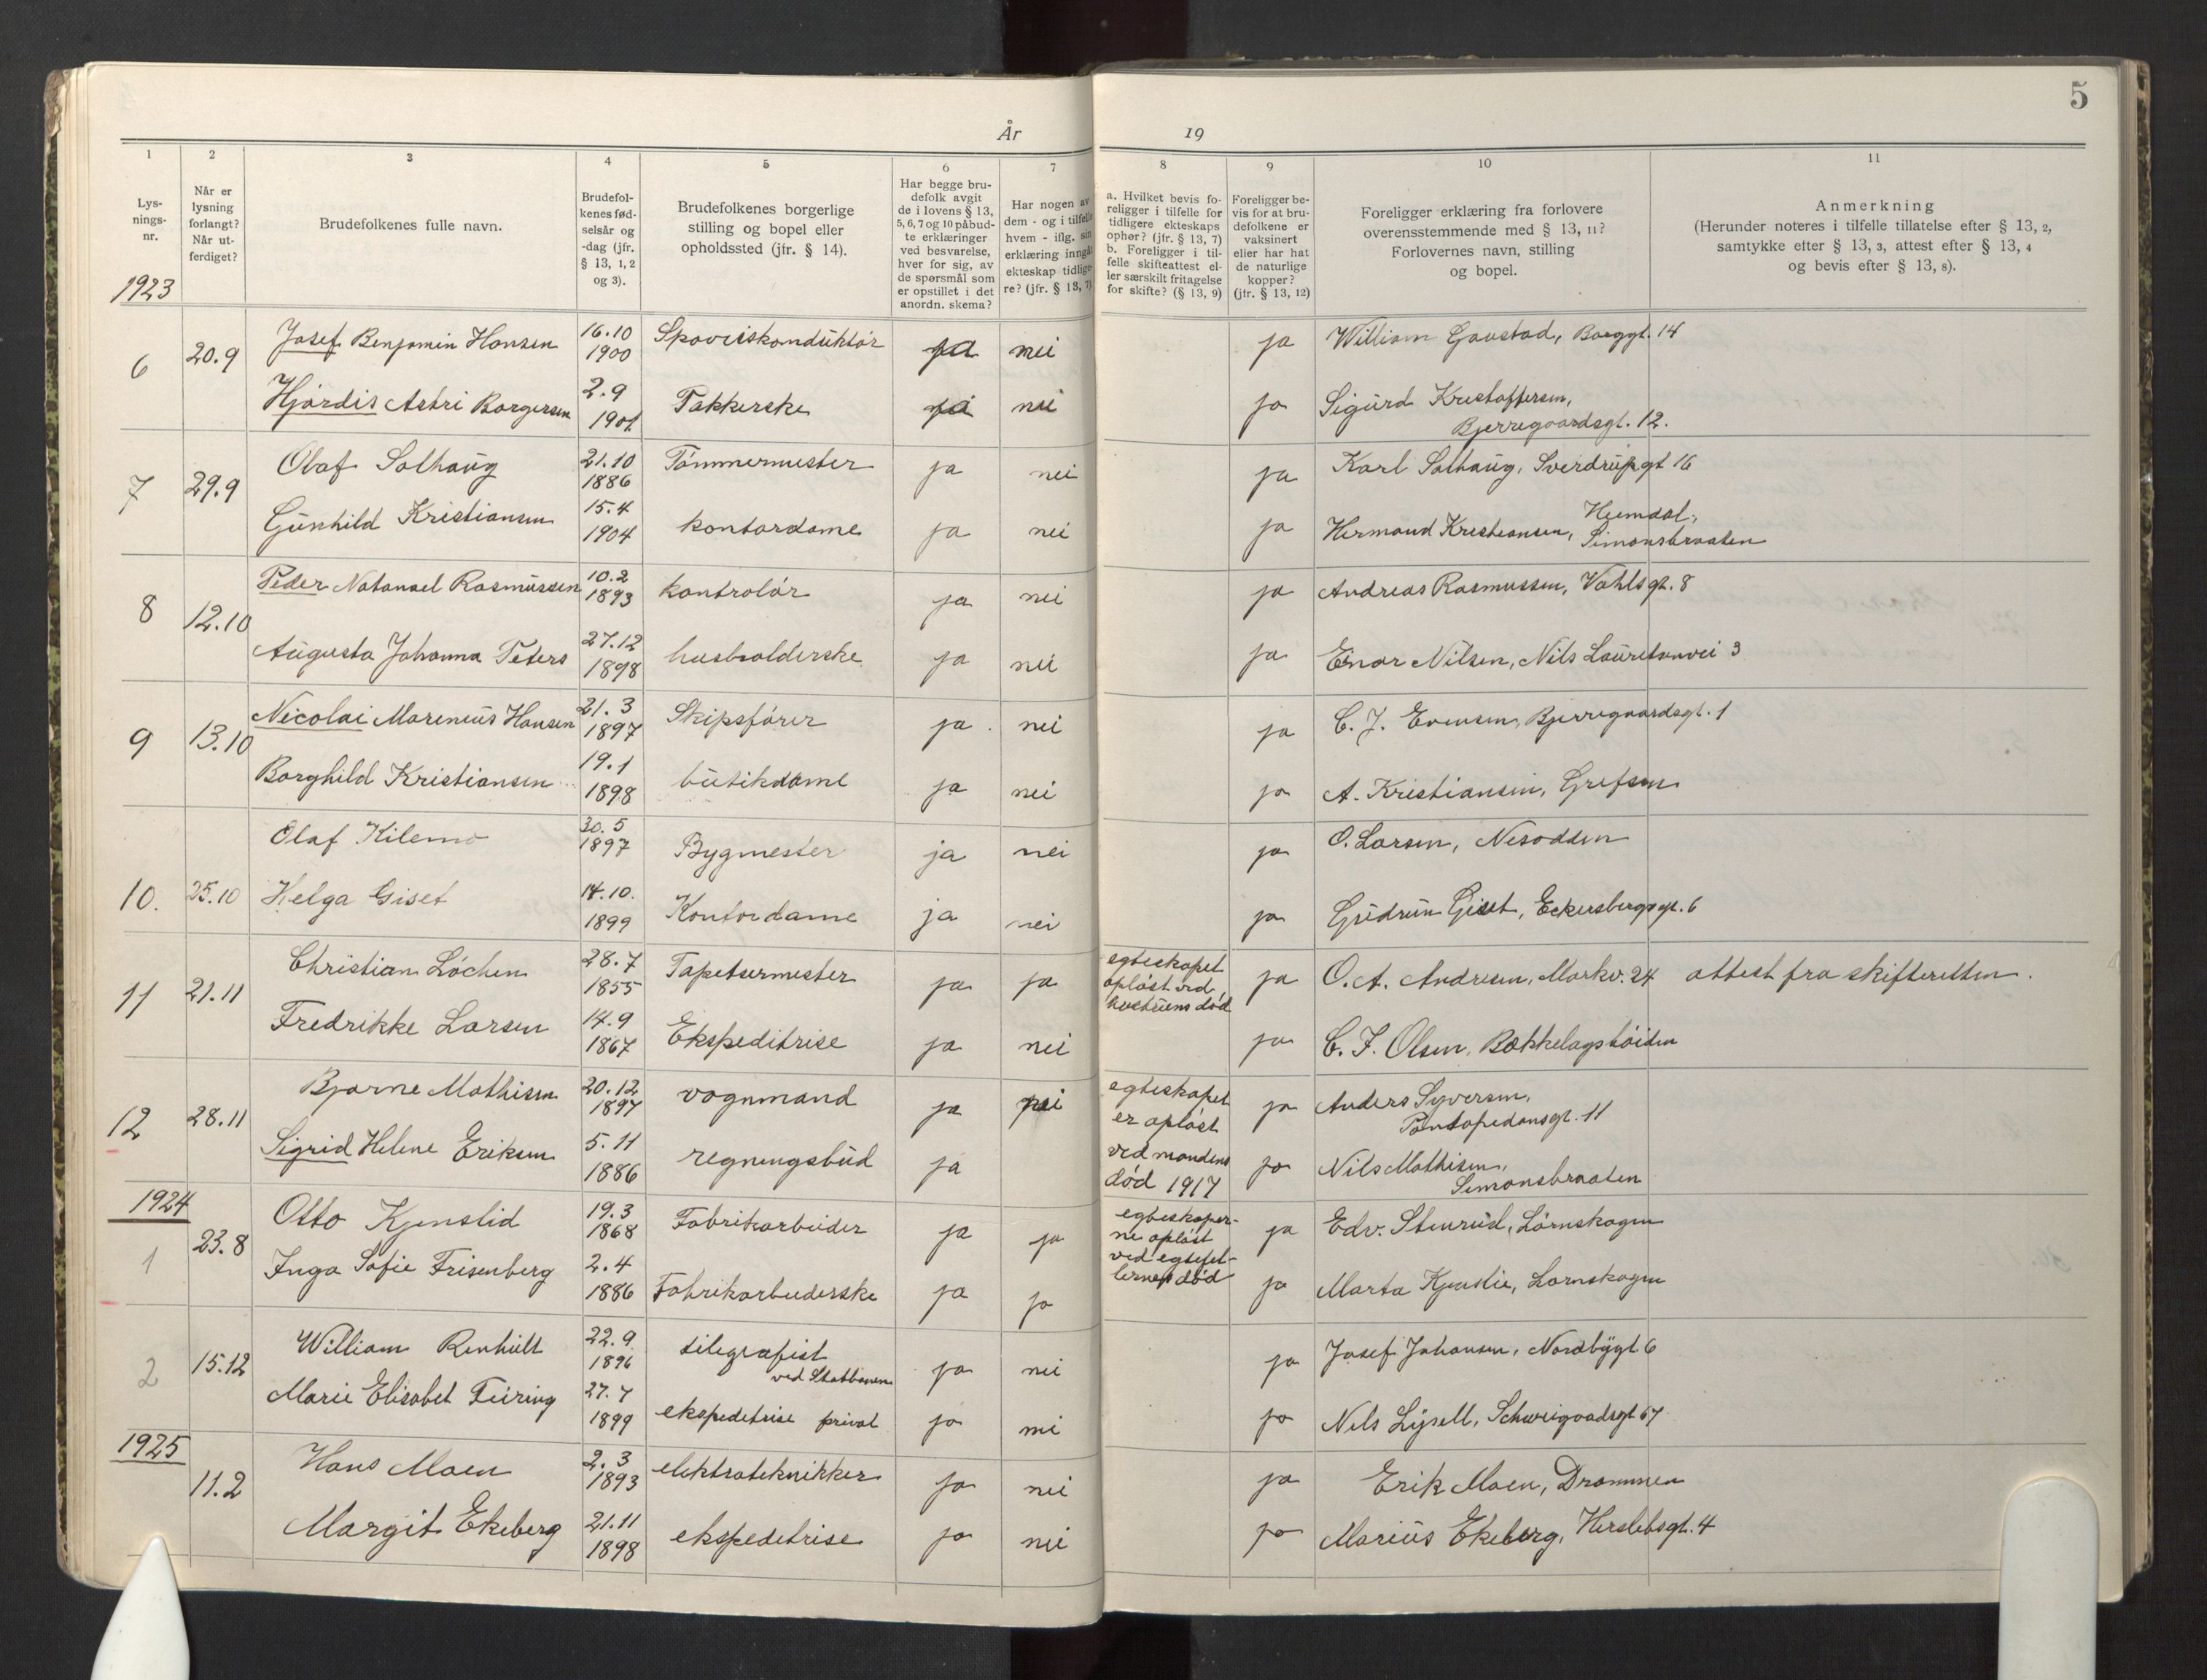 5
År 19
1 2 3 4 5 6 7 8 9 10 11
Lys-
nings-
nr.
Når er
lysning
forlangt?
Når ut-
ferdiget?
Brudefolkenes fulle navn.
Brudefol-
kenes fød-
selsår og
-dag (jfr.
§ 13, 1, 2
og 3).
Brudefolkenes borgerlige
stilling og bopel eller
opholdssted (jfr. § 14).
Har begge bru-
defolk avgit
de i lovens § 13,
5, 6, 7 og 10 påbud-
te erklæringer
ved besvarelse,
hver for sig, av
de spørsmål som
er opstillet i det
anordn. skema?
Har nogen av
dem - og i tilfelle
hvem - iflg. sin
erklæring inngåt
ekteskap tidlige-
re? (jfr. § 13, 7)
a. Hvilket bevis fo-
religger i tilfelle for
tidligere ekteskaps
ophør? (jfr. § 13, 7)
b. Foreligger i til-
felle skifteattest el-
ler særskilt fritagelse
for skifte? (§ 13, 9)
Foreligger be-
vis for at bru-
defolkene er
vaksinert
eller har hat
de naturlige
kopper?
(jfr. § 13, 12)
Foreligger erklæring fra forlovere
overensstemmende med § 13, 11?
Forlovernes navn, stilling
og bopel.
Anmerkning
(Herunder noteres i tilfelle tillatelse efter § 13, 2,
samtykke efter § 13, 3, attest efter § 13, 4
og bevis efter § 13, 8).
1923
6 20.9 Josef Benjamin Hansen 16.10 1900 Sporveiskonduktør ja nei ja William Gaustad, Borggt. 14
Hjørdis Astri Borgersen 2.9 1901 Pakkerske ja nei ja Sigurd Kristoffersen,
Bjerregaardsgt. 12.
7 29.9 Olaf Solhaug 21.10 1886 Tømmermester ja nei ja Karl Solhaug, Sverdrupsgt 16
Gunhild Kristiansen 15.4 1904 kontordame ja nei ja Hermand Kristiansen, Heimdal,
Simonsbraaten
8 12.10 Peder Natanael Rasmussen 10.2 1893 kontrolør ja nei ja Andreas Rasmussen, Vahlsgt. 8
Augusta Johanna Peters 27.12 1898 husholderske ja nei ja Einar Nilsen, Nils Lauritsønvei 3
9 13.10 Nicolai Marenius Hansen 21.3 1897 Skipsfører ja nei ja C. J. Evensen, Bjerregaardsgt. 1
Borghild Kristiansen 19.1 1898 butikdame ja nei ja A. Kristiansen, Grefsen
10. 25.10 Olaf Kilemo 30.5 1897 Bygmester ja nei ja O. Larsen, Nesodden
Helga Giset 14.10. 1899 Kontordame ja nei ja Gudrun Giset, Eckersbergsgt. 6
11 21.11 Christian Løchen 28.7 1855 Tapetsermester ja ja egteskapet opløst ved hustruens død ja O. A. Andresen, Markv. 24 attest fra skifteretten.
Fredrikke Larsen 14.9 1867 Ekspeditrise ja nei ja C. F. Olsen, Bækkelagshøiden
12 28.11 Bjarne Mathisen 20.12 1897 vognmand ja nei egteskapet er opløst ja Anders Syversen,
Pontopedansgt. 11
Sigrid Helene Eriksen 5.11 1886 regningsbud ja ved mandens død 1917 ja Nils Mathisen,
Simonsbraaten
1924
1 23.8 Otto Kjenslid 19.3 1868 Fabrikarbeider ja ja egteskaper- ne opløst ja Edv. Stenrud, Lørnskogen
Inga Sofie Frisenberg 2.4 1886 Fabrikarbeiderske ja ja ved egtefel- lernes død ja Marta Kjenslie, Lørnskogen
2 15.12 William Renhult 22.9 1896 telegrafist
ved Statbanen ja nei ja Josef Johansen, Nordbygt. 6
Marie Elisabet Feiring 27.7 1899 ekspeditrise privat ja nei ja Nils Lysell, Schweigaadsgt 67
1925
11.2 Hans Moen 2.3 1893 elektrotekniker ja nei ja Erik Moen, Drammen
Margit Ekeberg 21.11 1898 ekspeditrise ja nei ja Marius Ekeberg, Herslebsgt. 4